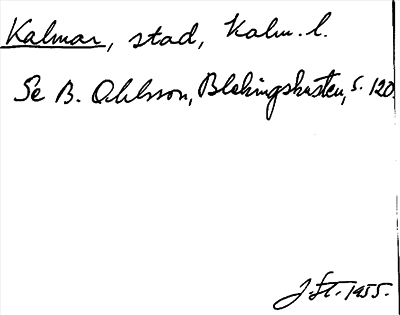 Kalmar, stad, Kalm. l.
Se B. Ohlsson, Blekingskusten, s. 120
J. St. 1955.